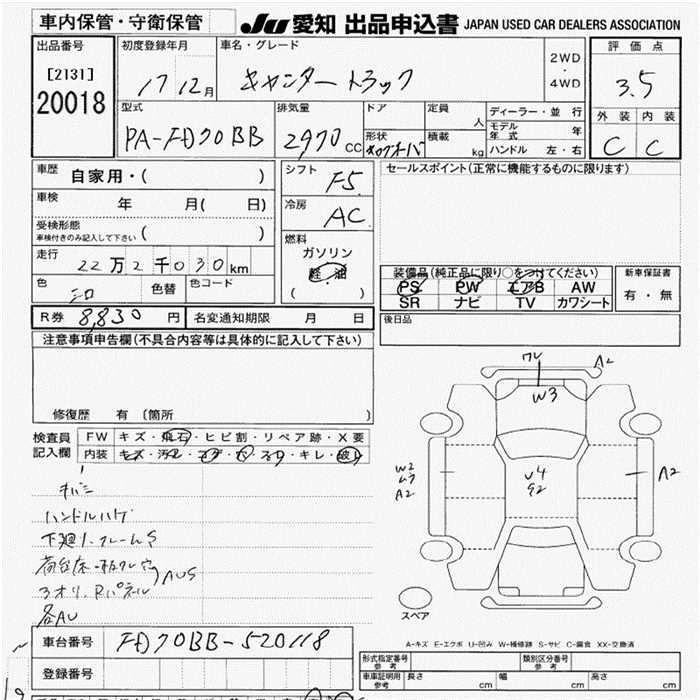 車内保管・守衛保管
JU 愛知 出品申込書 JAPAN USED CAR DEALERS ASSOCIATION
出品番号
[2131]
20018
初度登録年月
17 12月
車名・グレード
キャンター トラック
2WD
・
4WD
評価点
3.5
外装 内装
C C
型式
PA-FD70BB
排気量
2970 CC
ドア
形状
定員 人
積載 kg
ディーラー・並行
モデル年式 年
ハンドル 左・右
車歴 自家用・( )
車検 年 月( 日)
受検形態
車検付きのみ記入して下さい ( )
走行 22万2千030km
色 シロ 色替 色コード
シフト F5
冷房 AC
燃料
ガソリン
軽油
( )
セールスポイント(正常に機能するものに限ります)
装備品(純正品に限り○をつけてください)
PS PW エアB AW
SR ナビ TV カワシート
新車保証書
有・無
R券 8,830円 名変通知期限 月 日
後日品
注意事項申告欄(不具合内容等は具体的に記入して下さい)
修復歴 有〔箇所 〕
検査員記入欄
FW キズ・飛石・ヒビ割・リペア跡・X要
内装 キズ・汚レ・コゲ・穴・スレ・キレ・破レ
キバミ
ハンドルハゲ
下廻り、フレームS
3オリ、Rパネル
AUS
各AU
ワレ
A2
W3
W2
A2
U4
S2
A2
スペア
A-キズ E-エクボ U-凹み W-補修跡 S-サビ C-腐食 XX-交換済
車台番号 FD70BB-520118
登録番号
形式指定番号
参考
類別区分番号
参考
車車証明用
参考
長さ cm 幅 cm 高さ cm